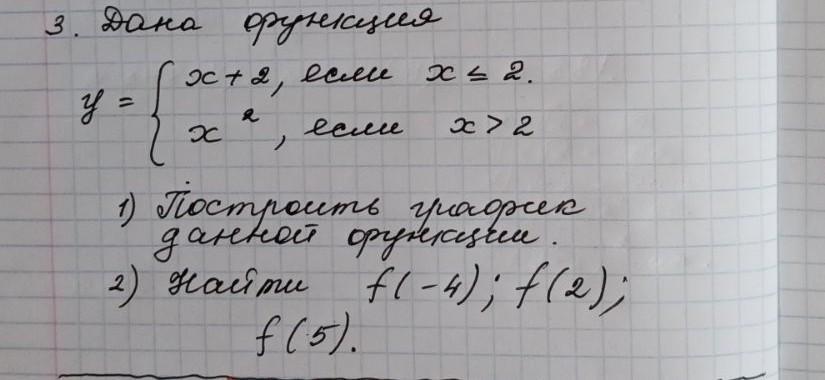 3. Дана функция
y = { x + 2, если x ≤ 2.
x², если x > 2
1) Построить график
данной функции.
2) Найти f(-4); f(2);
f(5).